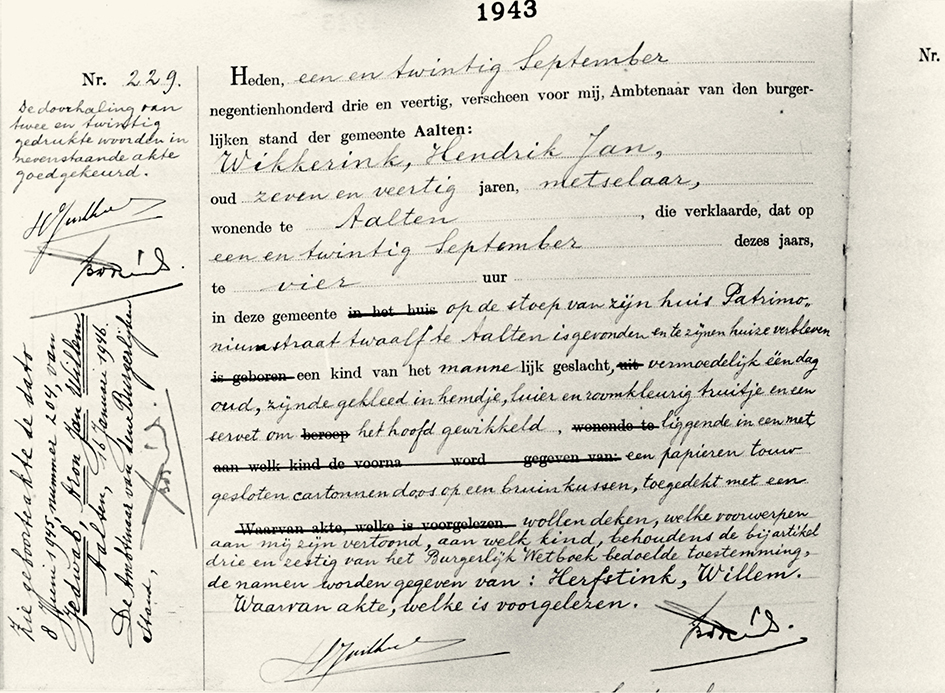 1943
Nr. 229.
De doorhaling van
twee en twintig
gedrukte woorden in
nevenstaande akte
goedgekeurd.
Zie geboorteakte de dato
8 Juni 1945, nummer 204, van
Jedwab, Aron Jan Willem
Aalten, 16 Januari 1946.
De Ambtenaar van den Burgerlijken
Stand,
Heden, een en twintig September
negentienhonderd drie en veertig, verscheen voor mij, Ambtenaar van den burger-
lijken stand der gemeente Aalten:
Wikkerink, Hendrik Jan,
oud zeven en veertig jaren, metselaar,
wonende te Aalten, die verklaarde, dat op
een en twintig September dezes jaars,
te vier uur
in deze gemeente in het huis op de stoep van zijn huis Patrimo„
niumstraat twaalf te Aalten is gevonden en te zijnen huize verbleven
is geboren een kind van het mannelijk geslacht, uit vermoedelijk één dag
oud, zijnde gekleed in hemdje, luier en roomkleurig truitje en een
servet om beroep het hoofd gewikkeld, wonende te liggende in een met
aan welk kind de voorna word gegeven van: een papieren touw
gesloten cartonnen doos op een bruin kussen, toegedekt met een
Waarvan akte, welke is voorgelezen. wollen deken, welke voorwerpen
aan mij zijn vertoond, aan welk kind, behoudens de bij artikel
drie en zestig van het Burgerlijk Wetboek bedoelde toestemming,
de namen worden gegeven van: Herfstink, Willem.
Waarvan akte, welke is voorgelezen.
Nr.